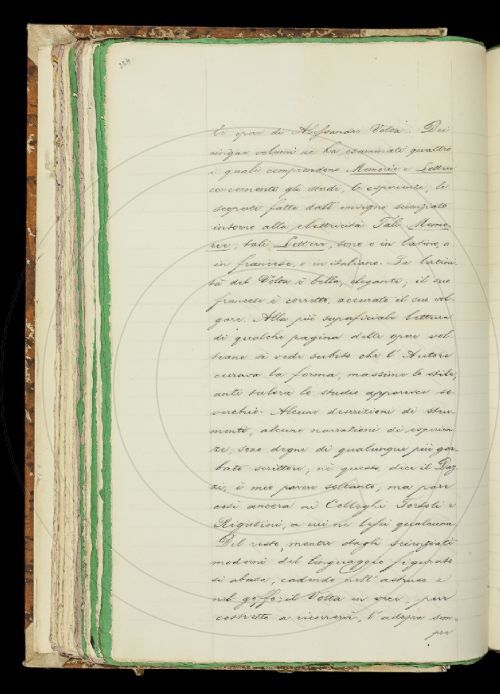 324
le opere di Alessandro Volta. Dei
cinque volumi ne ha esaminati quattro
i quali comprendono Memorie e Lettere
concernenti gli studi, le esperienze, le
scoperte fatte dall'insigne scienziato
intorno alla elettricità. Tali Memo-
rie, tali Lettere, sono o in latino, o
in francese, o in italiano. La latini-
tà del Volta è bella, elegante, il suo
francese è corretto, accurato il suo vol-
gare. Alla più superficiale lettura
di qualche pagina delle opere vol-
tiane si vede subito che l'Autore
curava la forma, massime lo stile,
anzi talora lo studio apparisce so-
verchio. Alcune descrizioni di stru-
menti, alcune narrazioni di esperien-
ze, sono degne di qualunque più gar-
bato scrittore, nè questo, dice il
è mio parere soltanto, ma pare
così ancora ai Colleghi Tortoli e
Rigutini, a cui ne lessi qualcuna
Del resto, mentre dagli scienziati
moderni del linguaggio figurato
si abusa, cadendo nell'astruso e
nel goffo; il Volta in vece, pur
costretto a ricorrervi, l'adopra sem-
pre